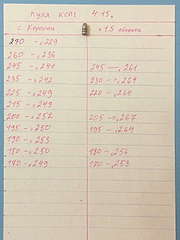 Пуля КСПЗ 4.15.
с Коробки + 1.5 оборота
270 - ,229
260 - ,236
245 - ,241 245 - ,261
235 - ,242 230 - ,264
225 - ,249 220 - ,261
215 - ,249
205 - ,252 205 - ,267
195 - ,250 195 - ,264
190 - ,250
180 - ,250 180 - ,256
170 - ,249 170 - ,253